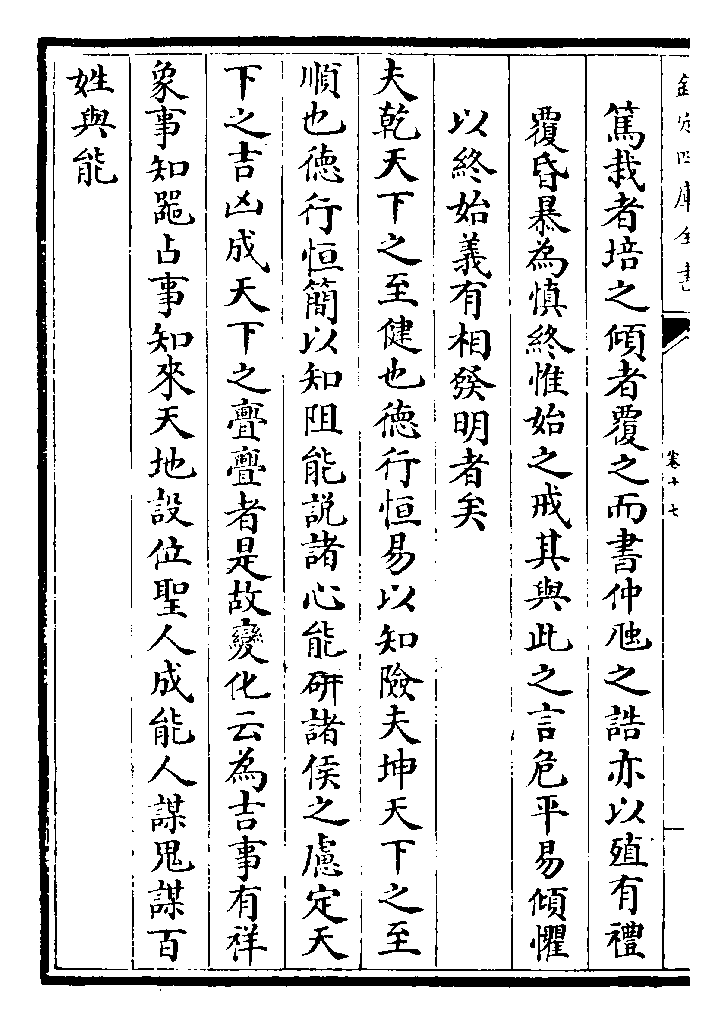 欽定四庫全書
卷十七
篤栽者培之傾者覆之而書仲虺之誥亦以殖有禮
覆昏暴為慎終惟始之戒其與此之言危平易傾懼
以終始義有相發明者矣
夫乾天下之至健也德行恒易以知險夫坤天下之至
順也德行恒簡以知阻能説諸心能硏諸侯之慮定天
下之吉凶成天下之亹亹者是故變化云為吉事有祥
象事知噐占事知來天地設位聖人成能人謀鬼謀百
姓與能